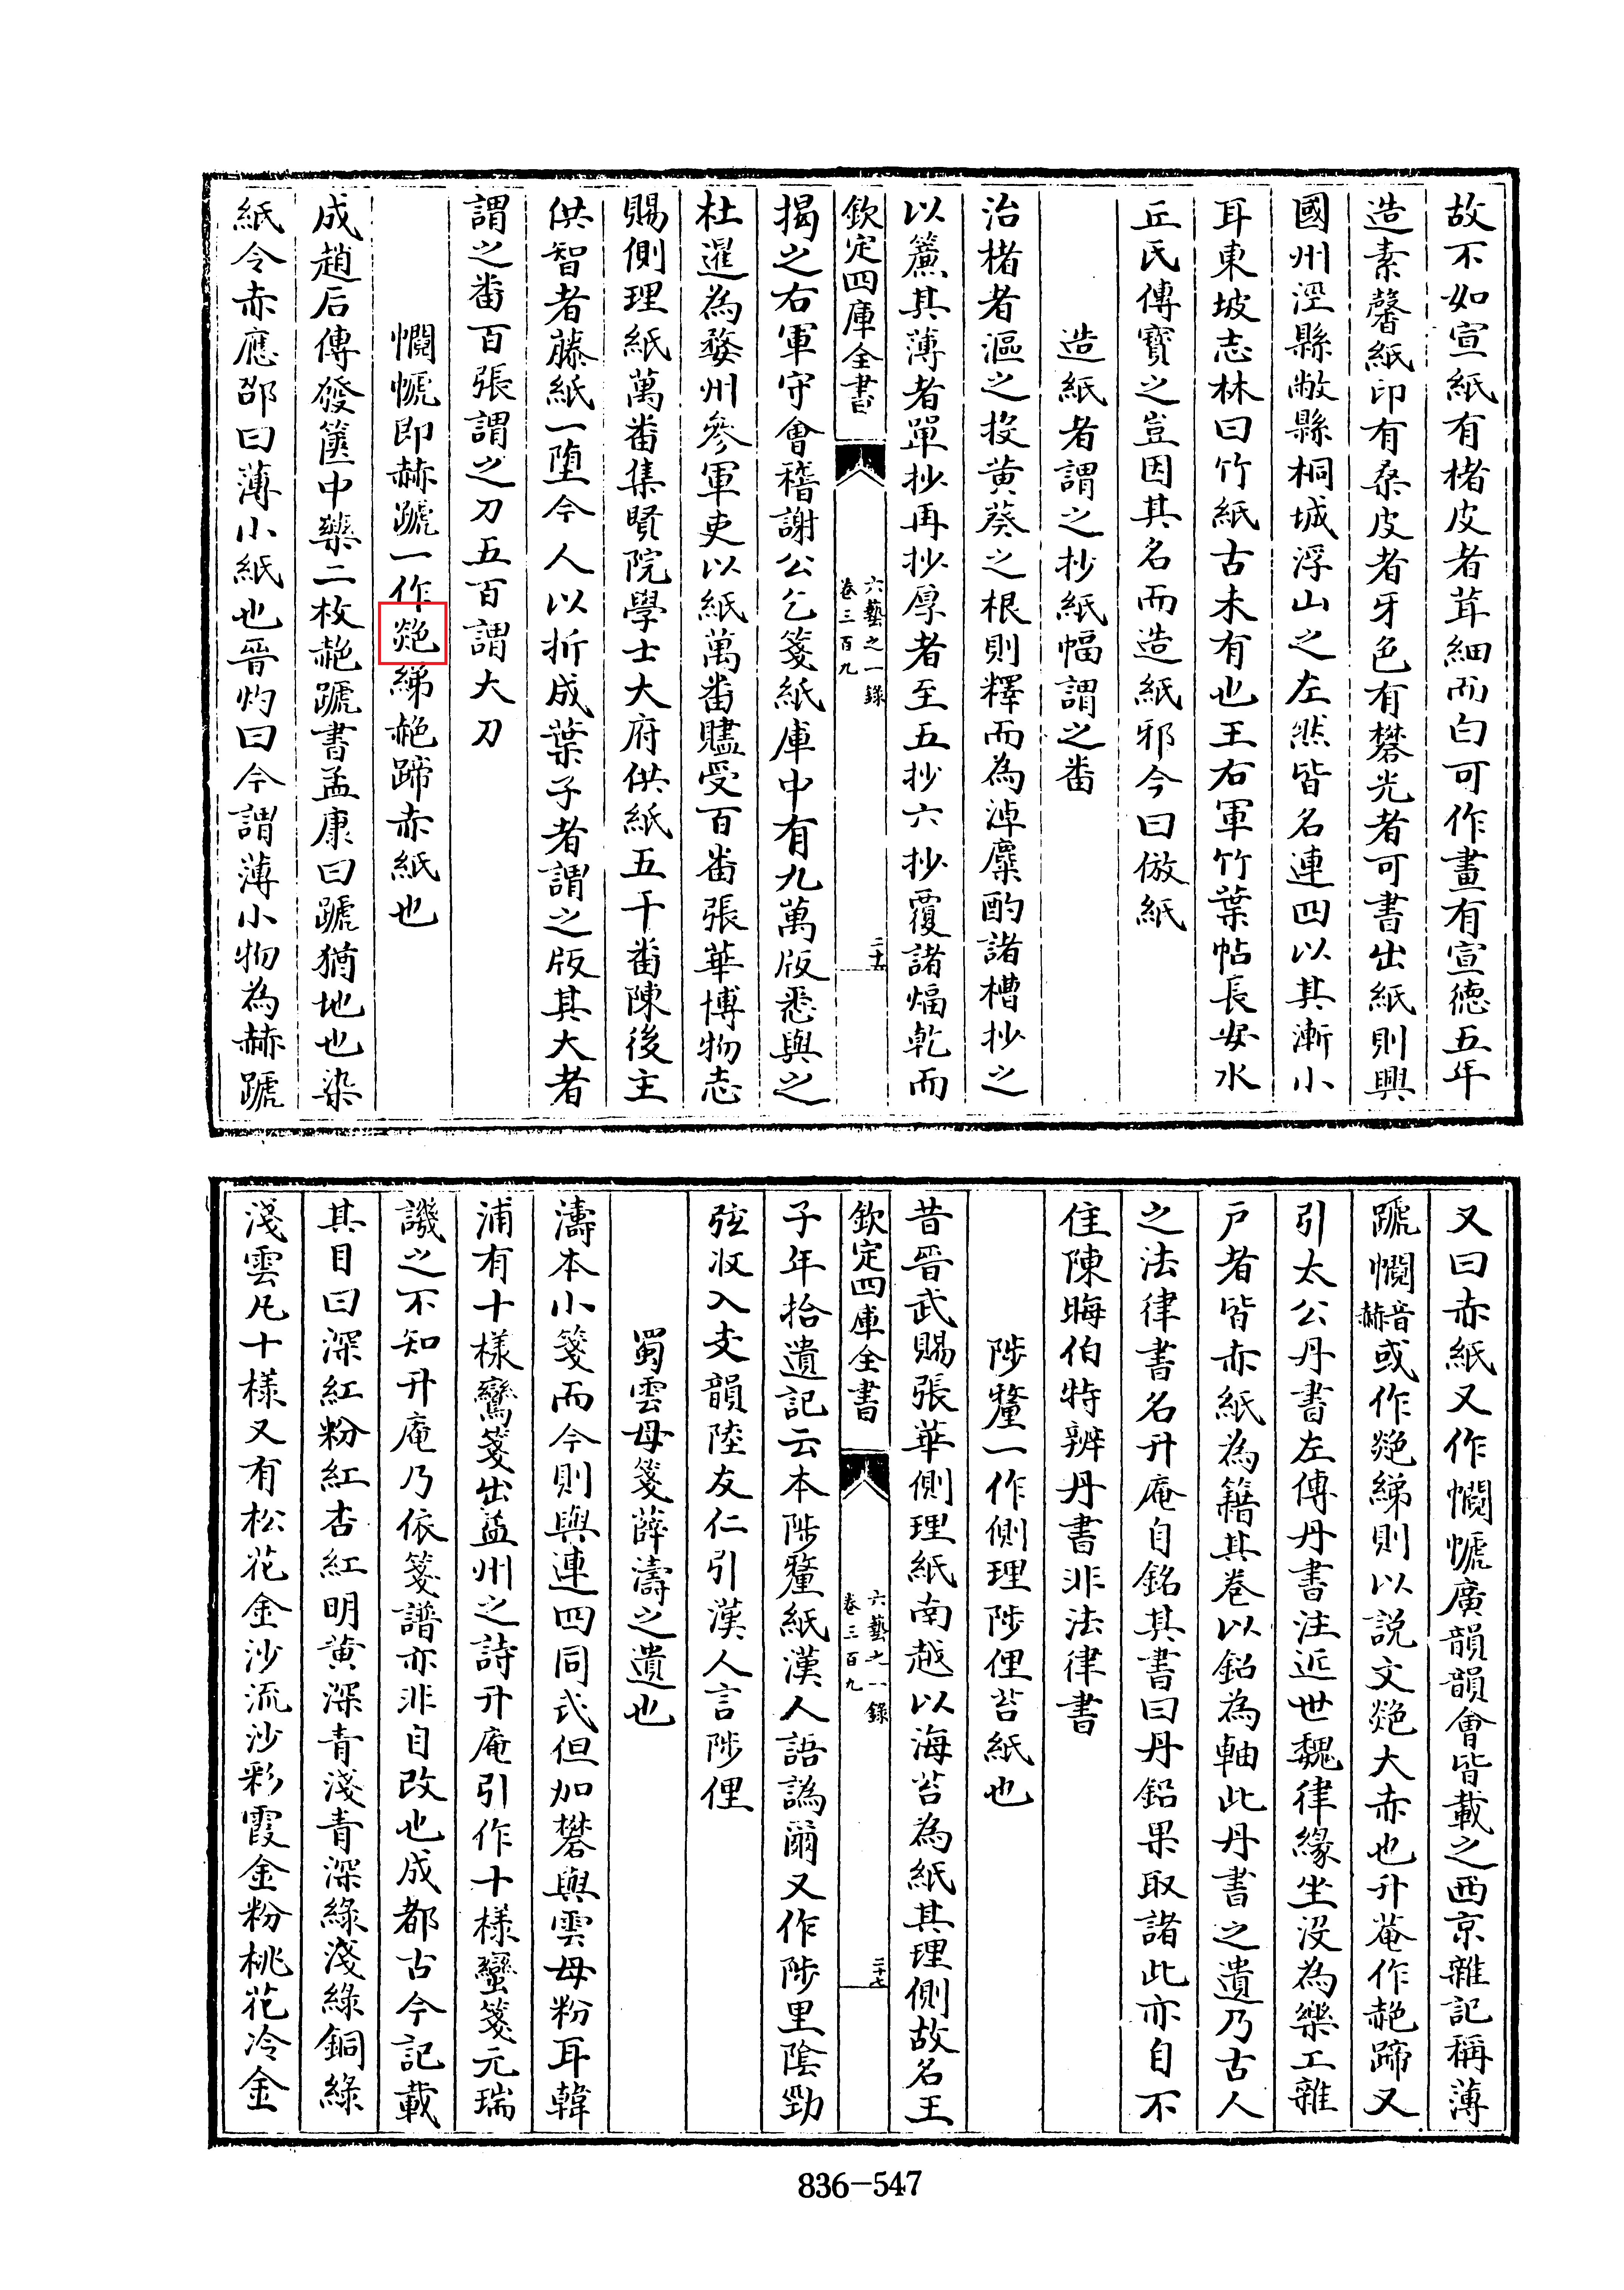 故不如宣紙有楮皮者茸細而白可作畫有宣德五年
造素馨紙印有桑皮者牙色有礬光者可書出紙則興
國州涇縣敝縣桐城浮山之左然皆名連四以其漸小
耳東坡志林曰竹紙古未有也王右軍竹葉帖長安水
丘氏傳寶之豈因其名而造紙邪今曰倣紙
造紙者謂之抄紙幅謂之番
治楮者漚之投黄葵之根則釋而為淖糜酌諸槽抄之
以簾其薄者單抄再抄厚者至五抄六抄覆諸煏乾而
欽定四庫全書
六藝之一錄
卷三百九
二十五
揭之右軍守會稽謝公乞箋紙庫中有九萬版悉與之
杜暹為婺州參軍吏以紙萬番贐受百番張華博物志
賜側理紙萬番集賢院學士大府供紙五千番陳後主
供智者藤紙一墮今人以折成葉子者謂之版其大者
謂之番百張謂之刀五百謂大刀
㦦㡗即赫蹏一作㷇綈赩蹄赤紙也
成趙后傳發篋中藥二枚赩蹏書孟康曰蹏猶地也染
紙令赤應邵曰薄小紙也晉灼曰今謂薄小物為赫蹏
又曰赤紙又作㦦㡗廣韻韻會皆載之西京雜記稱薄
蹏㦦音赫或作㷇綈則以説文㷇大赤也升菴作赩蹄又
引太公丹書左傳丹書注近世魏律緣坐沒為樂工雜
户者皆赤紙為籍其卷以鉛為軸此丹書之遺乃古人
之法律書名升庵自銘其書曰丹鉛果取諸此亦自不
住陳晦伯特辨丹書非法律書
陟釐一作側理陟俚苔紙也
昔晉武賜張華側理紙南越以海苔為紙其理側故名王
欽定四庫全書
六藝之一錄
卷三百九
二十七
子年拾遺記云本陟釐紙漢人語譌爾又作陟里陰勁
弦收入支韻陸友仁引漢人言陟俚
蜀雲母箋薛濤之遺也
濤本小箋而今則與連四同式但加礬與雲母粉耳韓
浦有十樣鸞箋出益州之詩升庵引作十樣蠻箋元瑞
譏之不知升庵乃依箋譜亦非自改也成都古今記載
其目曰深紅粉紅杏紅明黄深青淺青深綠淺綠銅綠
淺雲凡十様又有松花金沙流沙彩霞金粉桃花冷金
836-547